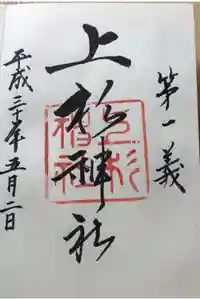 第一義
上杉神社
平成三十年五月二日
上杉神社